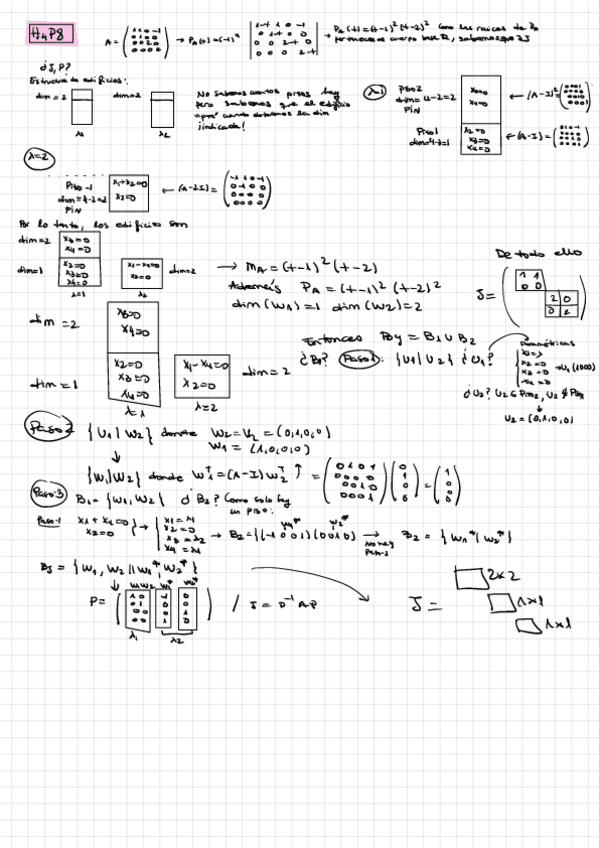 H4P8
A = (1 1 0 -1 / 0 1 0 0 / 0 0 2 0 / 0 0 0 2) → PA(t) = (-1)^4 |1-t 1 0 -1 / 0 1-t 0 0 / 0 0 2-t 0 / 0 0 0 2-t| → PA(t) = (t-1)² (t-2)² Como las raíces de PA
pertenecen al cuerpo base R, sabemos que ∃ J
¿J, P?
Estructura de edificios:
dim = 2 dim = 2
λ1 λ2
No sabemos cuantos pisos hay
pero sabemos que el edificio
cuando obtenemos la dim
indicada!
λ=1
Piso 2
dim = 4-2 = 2
FIN
x3=0
x4=0
← (A-I)² =
Piso 1
dim = 4-3 = 1
x2=0
x3=0
x4=0
← (A-I) =
λ=2
Piso 1
dim = 4-2 = 2
FIN
x1+x4=0
x2=0
← (A-2I) = (-1 1 0 -1 / 0 -1 0 0 / 0 0 0 0 / 0 0 0 0)
Por lo tanto, los edificios son
dim=2 x3=0 x4=0
dim=1 x2=0 x3=0 x4=0
λ=1
x1-x4=0 x2=0 dim=2
λ2
→ mA = (t-1)² (t-2)
Además PA = (t-1)² (t-2)²
dim(W1)=1 dim(W2)=2
De todo ello
J = (1 1 / 0 0 2 0 / 0 2)
dim = 2 x3=0 x4=0
dim = 1 x2=0 x3=0 x4=0
λ=1
x1-x4=0 x2=0 dim = 2
λ=2
Entonces BJ = B1 ∪ B2
¿B1? Paso 1: {U1 | U2} ¿U1?
Paramétricas
x1=λ
x2=0
x3=0
x4=0
→ U1 (1000)
¿U2? U2 ∈ Piso2, U2 ∉ Piso
U2 = (0,1,0,0)
Paso 2 {U1 | W2} donde W2 = U2 = (0,1,0,0)
W1 = (1,0,0,0)
{W1|W2} donde W1^t = (A-I) W2^t = (0 1 0 1 / 0 0 0 0 / 0 0 1 0 / 0 0 0 1) (0 / 1 / 0 / 0) = (1 / 0 / 0 / 0)
Paso:3 B1 = {W1, W2} ¿B2? Como solo hay
un piso:
Paso 1 x1 + x4=0 x2=0 → x1=λ x2=0 x3=λ2 x4=λ1 → B2 = {(-1 0 0 1)(0 0 1 0) → B2 = {W1* | W2*}
BJ = {W1, W2 || W1*, W2*}
P = (W1 W2 W1* W2*) / J = P⁻¹ A P
λ1 λ2
J = 2x2
1x1
1x1